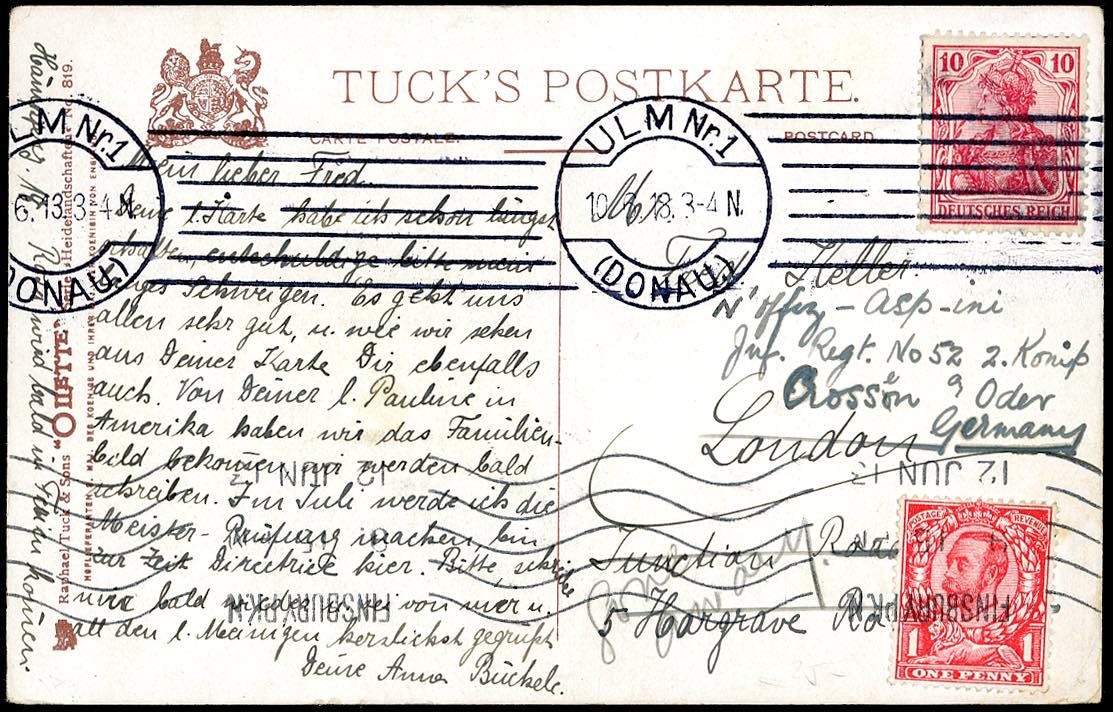 TUCK'S POSTKARTE.
CARTE POSTALE.
POSTCARD.
10 10
DEUTSCHES REICH
ULM Nr.1
6. 13. 3-4 N.
(DONAU)
ULM Nr.1
10. 6. 13. 3-4 N.
(DONAU)
Mein lieber Fred.
Deine l. Karte habe ich schon längst
erhalten, entschuldige bitte mein
langes Schweigen. Es geht uns
allen sehr gut, u. wie wir sehen
aus Deiner Karte Dir ebenfalls
auch. Von Deiner l. Pauline in
Amerika haben wir das Familien-
bild bekommen wir werden bald
schreiben. Im Juli werde ich die
Meister-Prüfung machen bin
zur Zeit Directrice hier. Bitte schreibe
mir bald wieder u. sei von mir u.
all den l. Meinigen herzlichst gegrüßt
Deine Anna Büchele.
wird bald in kommen.
Heller
Inf. Regt. No 52 2. Komp
Crossen a Oder
Germany
London
Junction Road
5 Hargrave Road
Gone away
12 JUN 13
FINSBURY PK N
12 JUN 13
FINSBURY PK N
POSTAGE REVENUE
1 1
ONE PENNY
Raphael Tuck & Sons "OILETTE" Serie "Heidelandschaften" No. 819.